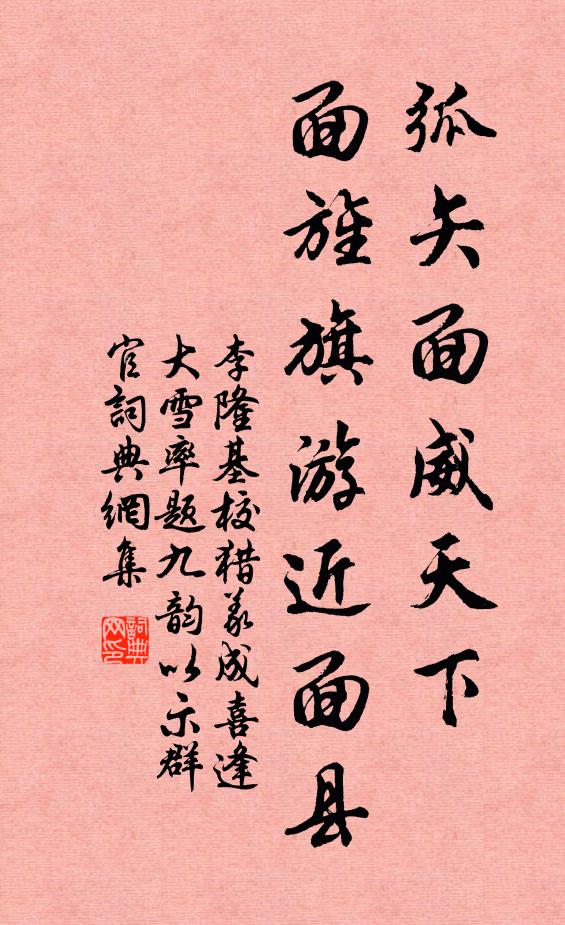 弧矢面威天下
面旌旗游近面县
李隆基校猎义成喜逢
大雪率题九韵以示群
官詞典網集
詞典网印